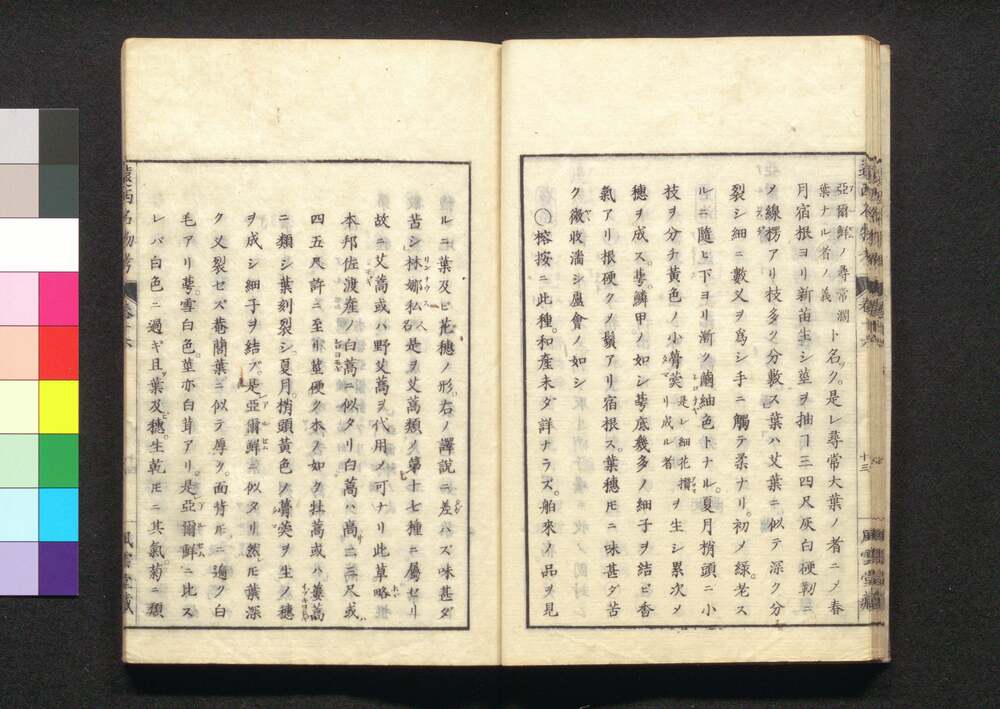 亞爾鮮ノ尋常濶葉ナル者ノ義ト名ツク。是レ尋常大葉ノ者ニメ春
月宿根ヨリ新苗生シ莖ヲ抽ヿ三四尺灰白梗靭ニ
メ線楞アリ枝多ク分數ス葉ハ艾葉ニ似テ深ク分
裂シ細ニ數叉ヲ爲シ手ニ觸テ柔ナリ。初メ綠。老ス
ルニ隨ヒ下ヨリ漸ツ繭紬色トナル。夏月梢頭ニ小
枝ヲ分チ黄色ノ小骨葖是レ細花攢リ成ル者ヲ生シ累次メ
穗ヲ成ス。萼鱗甲ノ如シ萼底幾多ノ細子ヲ結ヒ香
氣アリ根硬ク鬚アリ宿根ス。葉穗圧ニ味甚ダ苦
ク微收濇シ盧會ノ如シ
〇榕按ニ此種。和產未ダ詳ナラズ。舶來ノ品ヲ見
ルニ葉及ヒ花穗ノ形。右ノ譯說ニ差ハズ味甚ダ
苦シ林娜私人名是ヲ艾蒿類ノ第十七種ニ屬セリ
故ニ艾蒿或ハ野艾蒿ヲ代用メ可ナリ此草略
本邦佐渡産ノ白蒿ニ似タリ白蒿ハ高二三尺或
四五尺許ニ至リ莖硬ク木ノ如ク牡蒿或ハ蔞蒿
ニ類シ葉刻裂シ夏月。梢頭黄色ノ骨葖ヲ生ノ穗
ヲ成シ細子ヲ結フ。是亞爾鮮ニ似タリ然圧葉深
ク叉裂セズ菴䕡葉ニ似テ厚ク。面背圧ニ遍ク白
毛アリ萼。雪白色。莖亦白茸アリ。是亞爾鮮ニ比ス
レバ白色ニ過ギ且葉及穗。生乾圧ニ其氣。菊ニ類
遠西名物考
卷十六
十三
風雲堂藏